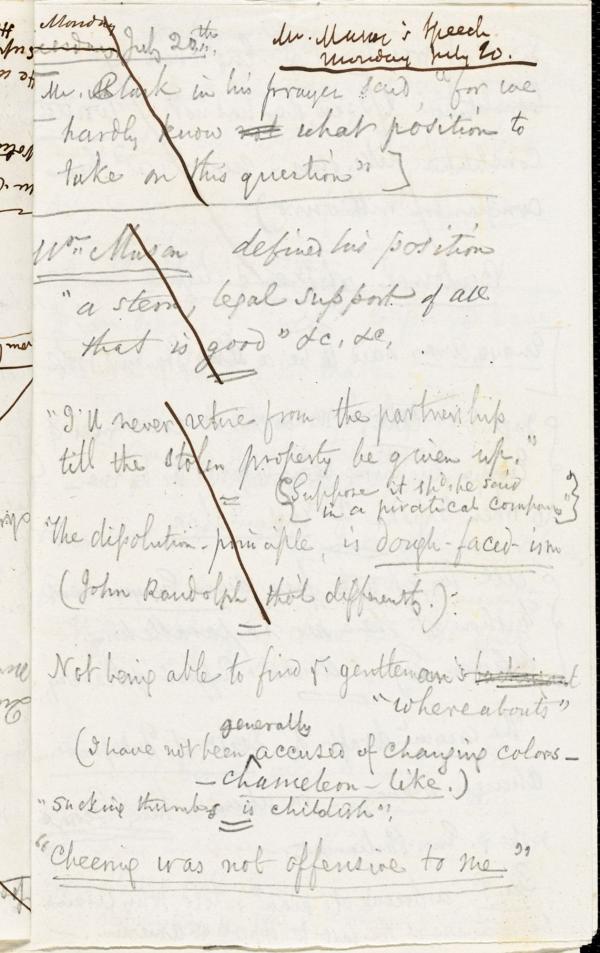 Monday
Tuesday July 20th.
Mr. Munn's Speech
Monday July 20.
Mr. Clark in his prayer said "for we
hardly know not what position to
take on this question"]
defined his position
"a stern, legal support of all
that is good" &c, &c,
"I'll never retire from the partnership
till the stolen property be given up."
{Suppose it shd. be said
in a piratical company"}
"The dissolution-principle, is dough-faced-ism
(John Randolph tho't differently.)-
Not being able to find ye gentleman's
"whereabouts"
generally
(I have not been accused of changing colors-
-chameleon-like.)
"sucking thumbs is childish".
"Cheering was not offensive to me"